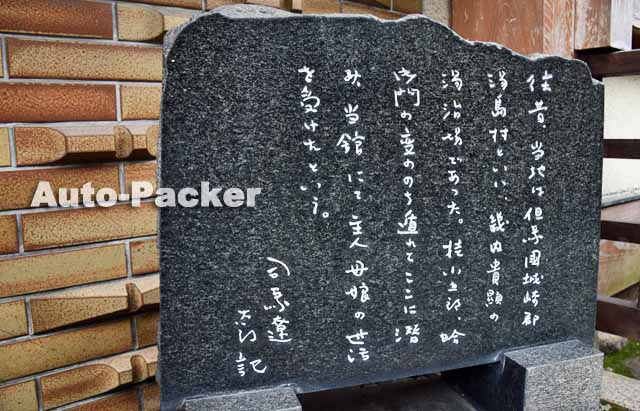 往昔、当地は但馬國城崎郡
湯島村といい、畿内貴顕の
湯治場であった。桂小五郎、蛤
御門の変ののち遁れてここに潜
み、当館にて主人母娘の世話
を受けたという。
司馬遼
太郎記
Auto-Packer